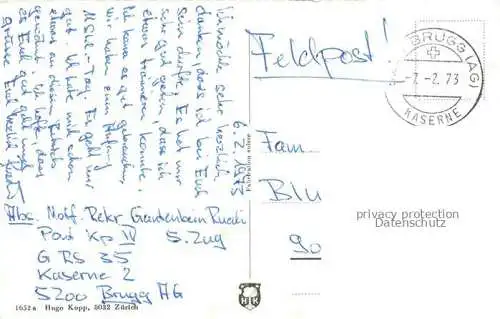 Ich möchte sehr herzlich
danken, dass ich bei Euch
sein durfte. Es hat mir
sehr gut getan, dass ich
etwas trainieren konnte.
Ich kann es gut gebrauchen,
wir haben zum Anfang
Tag. Es geht mir
gut. Ich habe mich schon
etwas an diesen Betrieb
gewöhnt. Ich hoffe, dass
es Euch gut geht und
grüsse Euch herzlich
6.2.1973
Abs. Motf. Rekr Gantenbein Ruedi
Pont Kp IV 5. Zug
G RS 35
Kaserne 2
5200 Brugg AG
1652a Hugo Kopp, 8032 Zürich
HK
Feldpost!
BRUGG (AG)
-7.-2.73
KASERNE
Fam.
Blu
90
privacy protection
Datenschutz